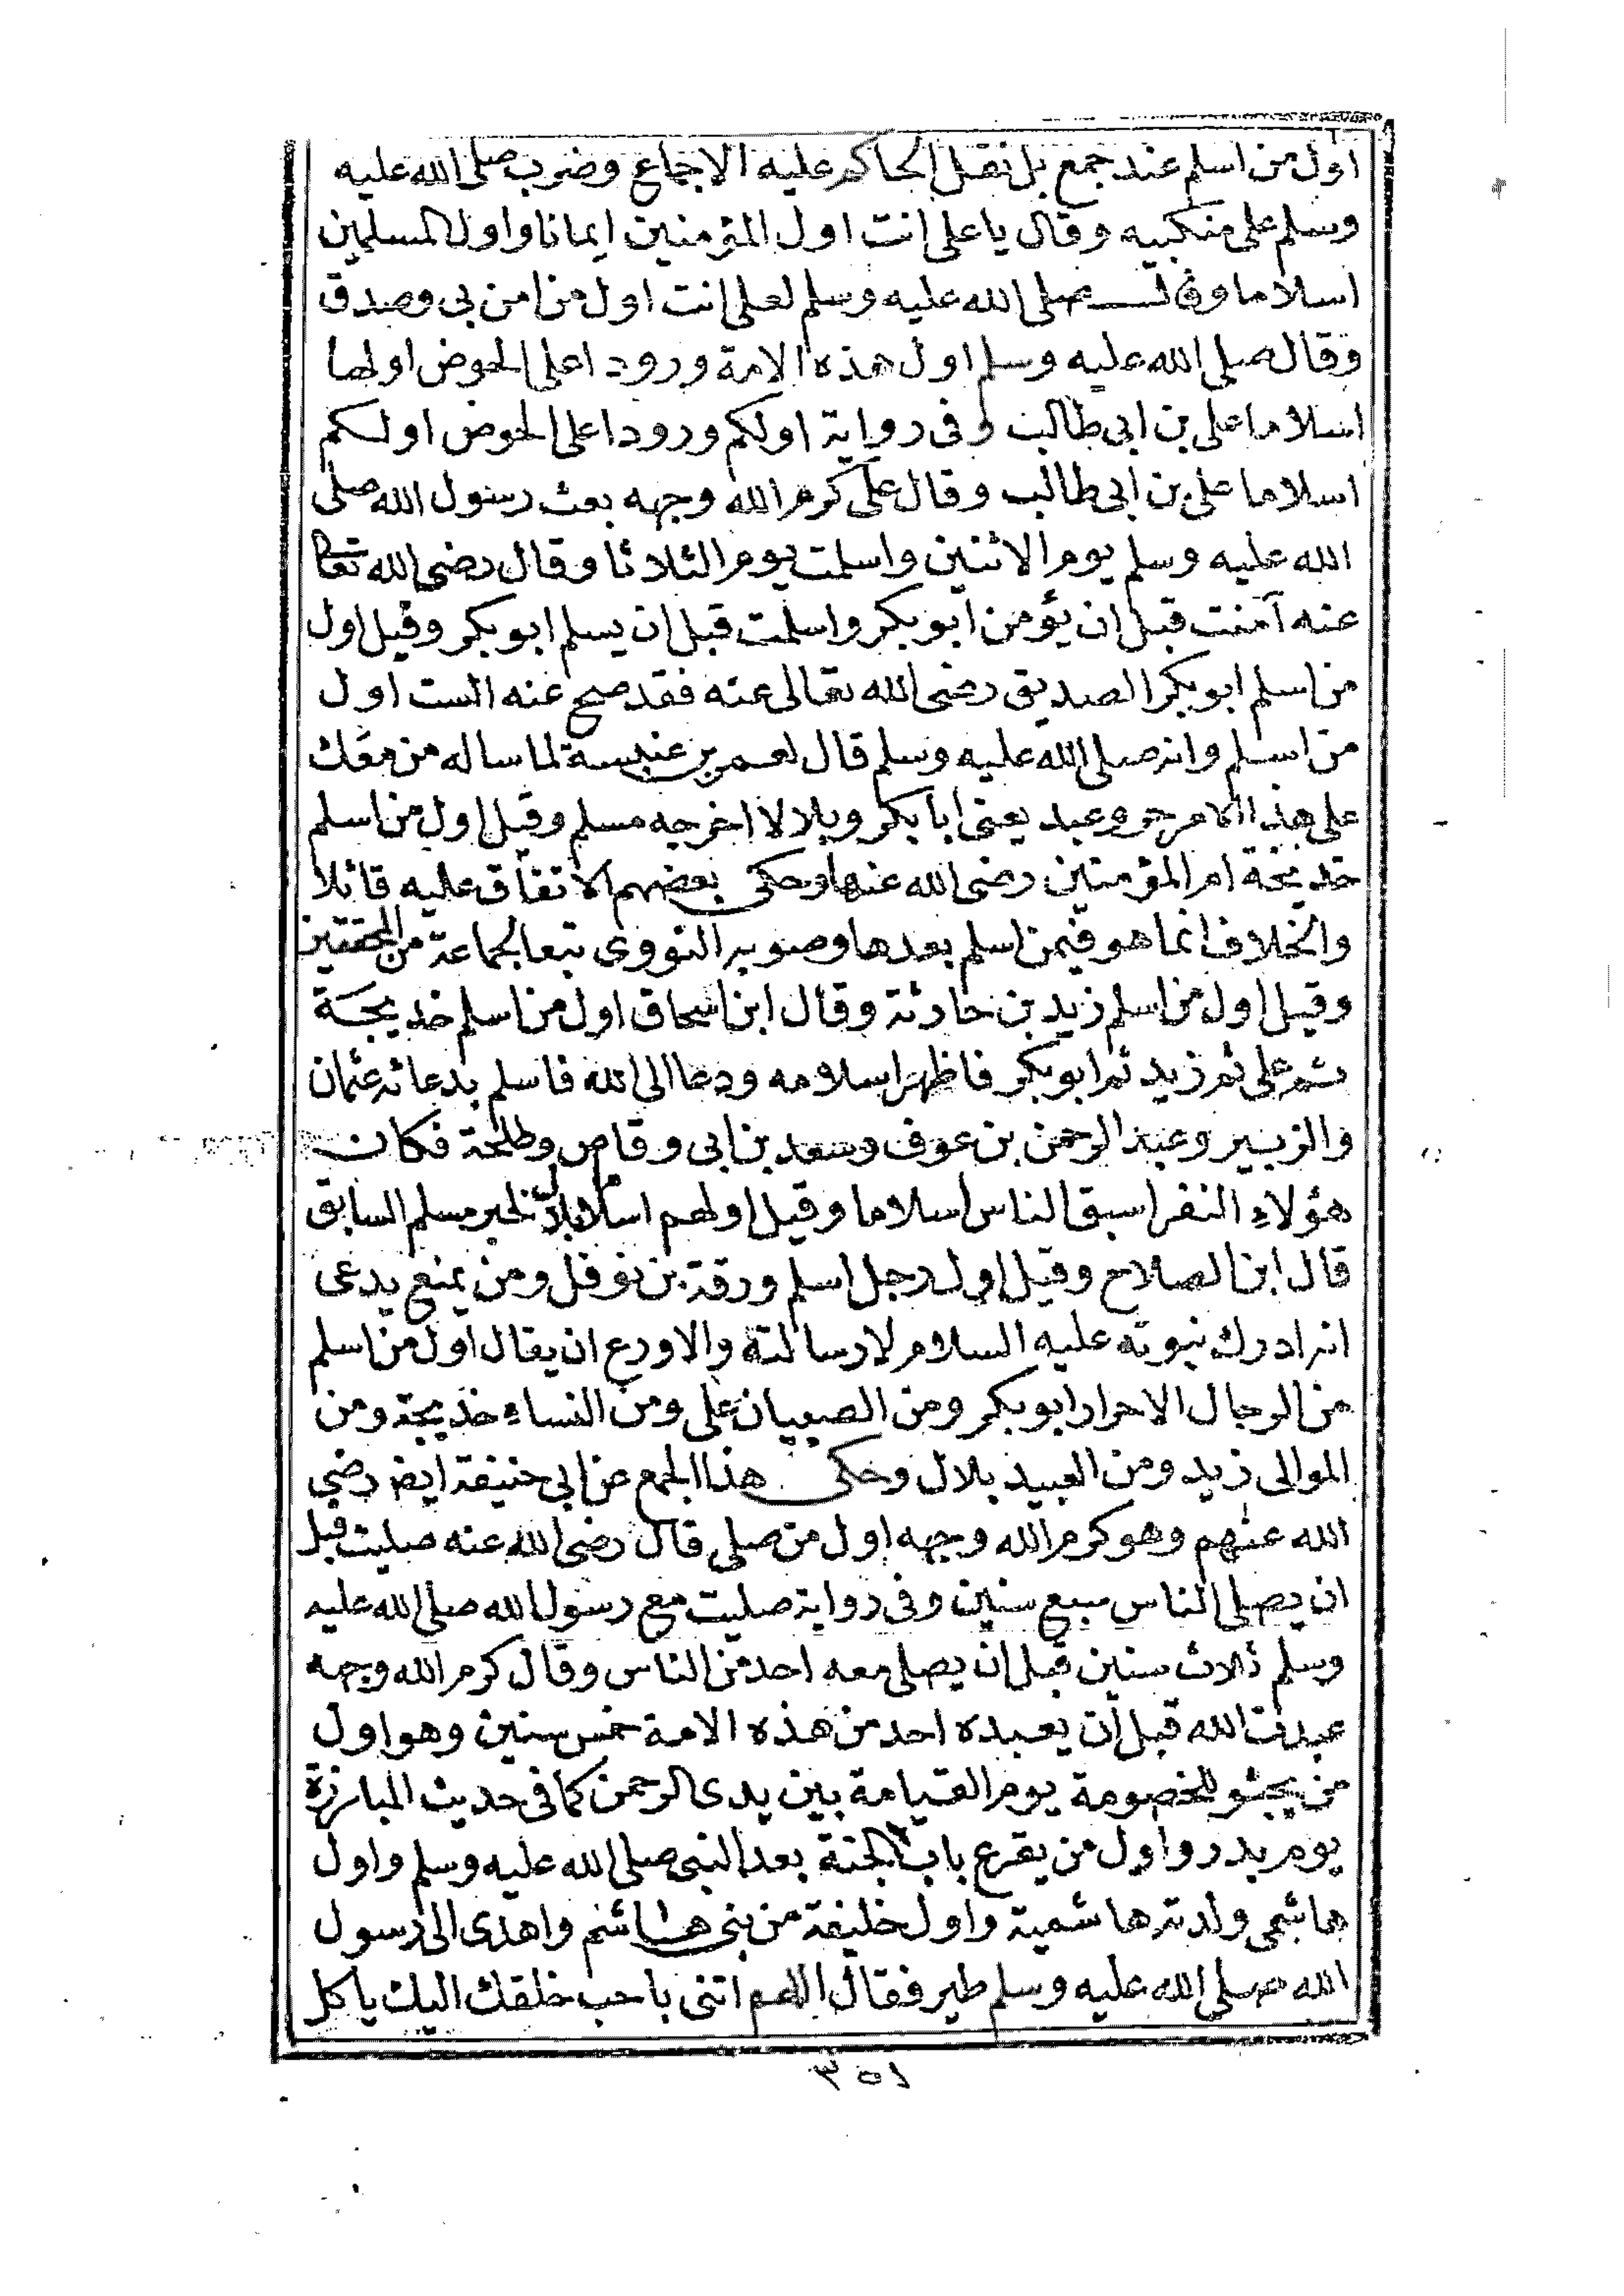 اول من اسلم عند جمع بل نقل الحاكم عليه الاجماع وضرب صلى الله عليه
وسلم على منكبيه وقال يا على انت اول المؤمنين ايمانا واول المسلمين
اسلاما وقال صلى الله عليه وسلم لعلى انت اول من امن بى وصدق
وقال صلى الله عليه وسلم اول هذه الامة ورودا على الحوض اولها
اسلاما على بن ابى طالب وفى رواية اولكم ورودا على الحوض اولكم
اسلاما على بن ابى طالب وقال على كرم الله وجهه بعث رسول الله صلى
الله عليه وسلم يوم الاثنين واسلمت يوم الثلاثا وقال رضى الله تعا
عنه آمنت قبل ان يؤمن ابو بكر واسلمت قبل ان يسلم ابو بكر وقيل اول
من اسلم ابو بكر الصديق رضى الله تعالى عنه فقد صح عنه الست اول
من اسلم وانه صلى الله عليه وسلم قال لعمر بن عنبسة لما ساله من معك
على هذا الامر حر وعبد يعنى ابا بكر وبلالا اخرجه مسلم وقيل اول من اسلم
خديجة ام المؤمنين رضى الله عنها وحكى بعضهم الاتفاق عليه قائلا
والخلاف انما هو فيمن اسلم بعدها وصوبه النووى تبعا لجماعة من المحققين
وقيل اول من اسلم زيد بن حارثة وقال ابن اسحاق اول من اسلم خديجة
ثم على ثم زيد ثم ابو بكر فاظهر اسلامه ودعا الى الله فاسلم بدعائه عثمان
والزبير وعبد الرحمن بن عوف وسعد بن ابى وقاص وطلحة فكان
هؤلاء النفر اسبق الناس اسلاما وقيل اولهم اسلاما بلال لخبر مسلم السابق
قال ابن الصلاح وقيل اول رجل اسلم ورقة بن نوفل ومن يمنع يدعى
انه ادرك نبوته عليه السلام لا رسالته والاورع ان يقال اول من اسلم
من الرجال الاحرار ابو بكر ومن الصبيان على ومن النساء خديجة ومن
الموالى زيد ومن العبيد بلال وحكى هذا الجمع عن ابى حنيفة ايض رضى
الله عنهم وهو كرم الله وجهه اول من صلى قال رضى الله عنه صليت قبل
ان يصلى الناس سبع سنين وفى رواية صليت مع رسول الله صلى الله عليه
وسلم ثلاث سنين قبل ان يصلى معه احد من الناس وقال كرم الله وجهه
عبدت الله قبل ان يعبده احد من هذه الامة خمس سنين وهو اول
من يجثو للخصومة يوم القيامة بين يدى الرحمن كما فى حديث المبارزة
يوم بدر واول من يقرع باب الجنة بعد النبى صلى الله عليه وسلم واول
هاشمى ولدته هاشمية واول خليفة من بنى هاشم واهدى الى رسول
الله صلى الله عليه وسلم طير فقال اللهم اتنى باحب خلقك اليك ياكل
٣٥١